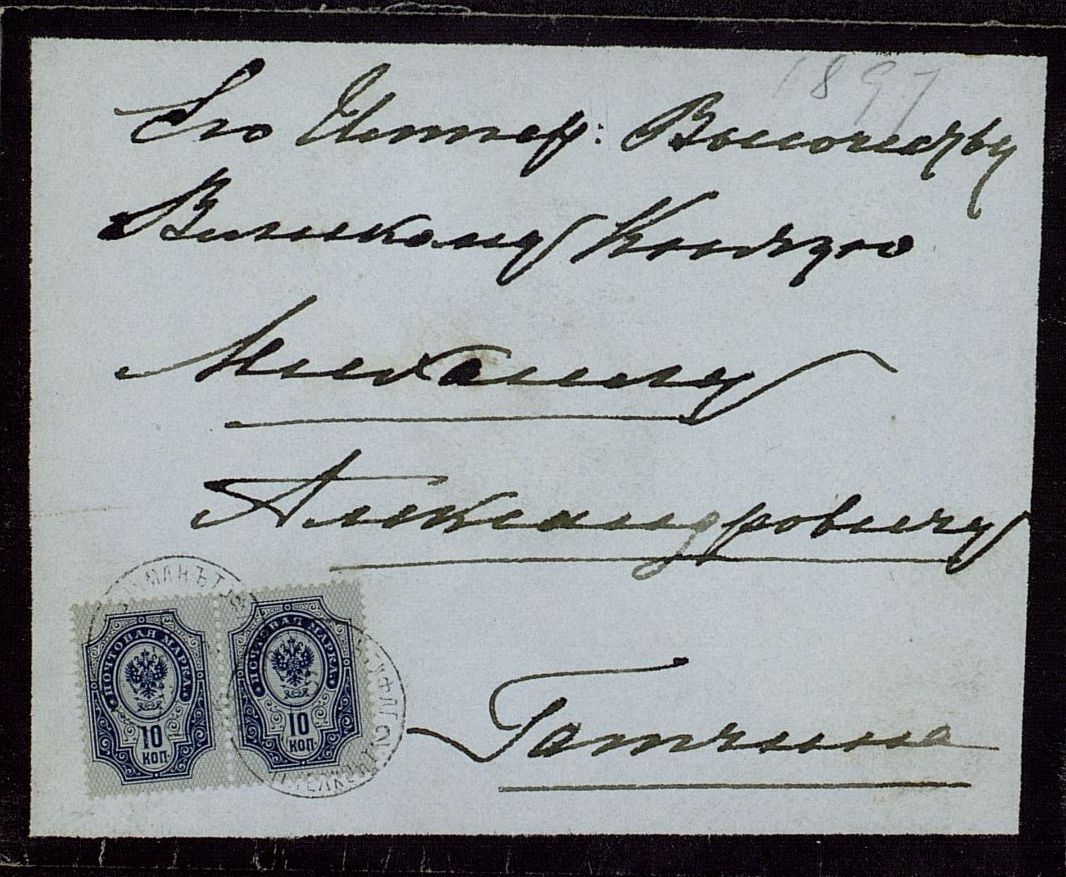 1897
Его Импер: Высочеству
Великому Князю
Михаилу
Александровичу
Гатчина
ПОЧТОВАЯ МАРКА
10
КОП
ПОЧТОВАЯ МАРКА
10
КОП